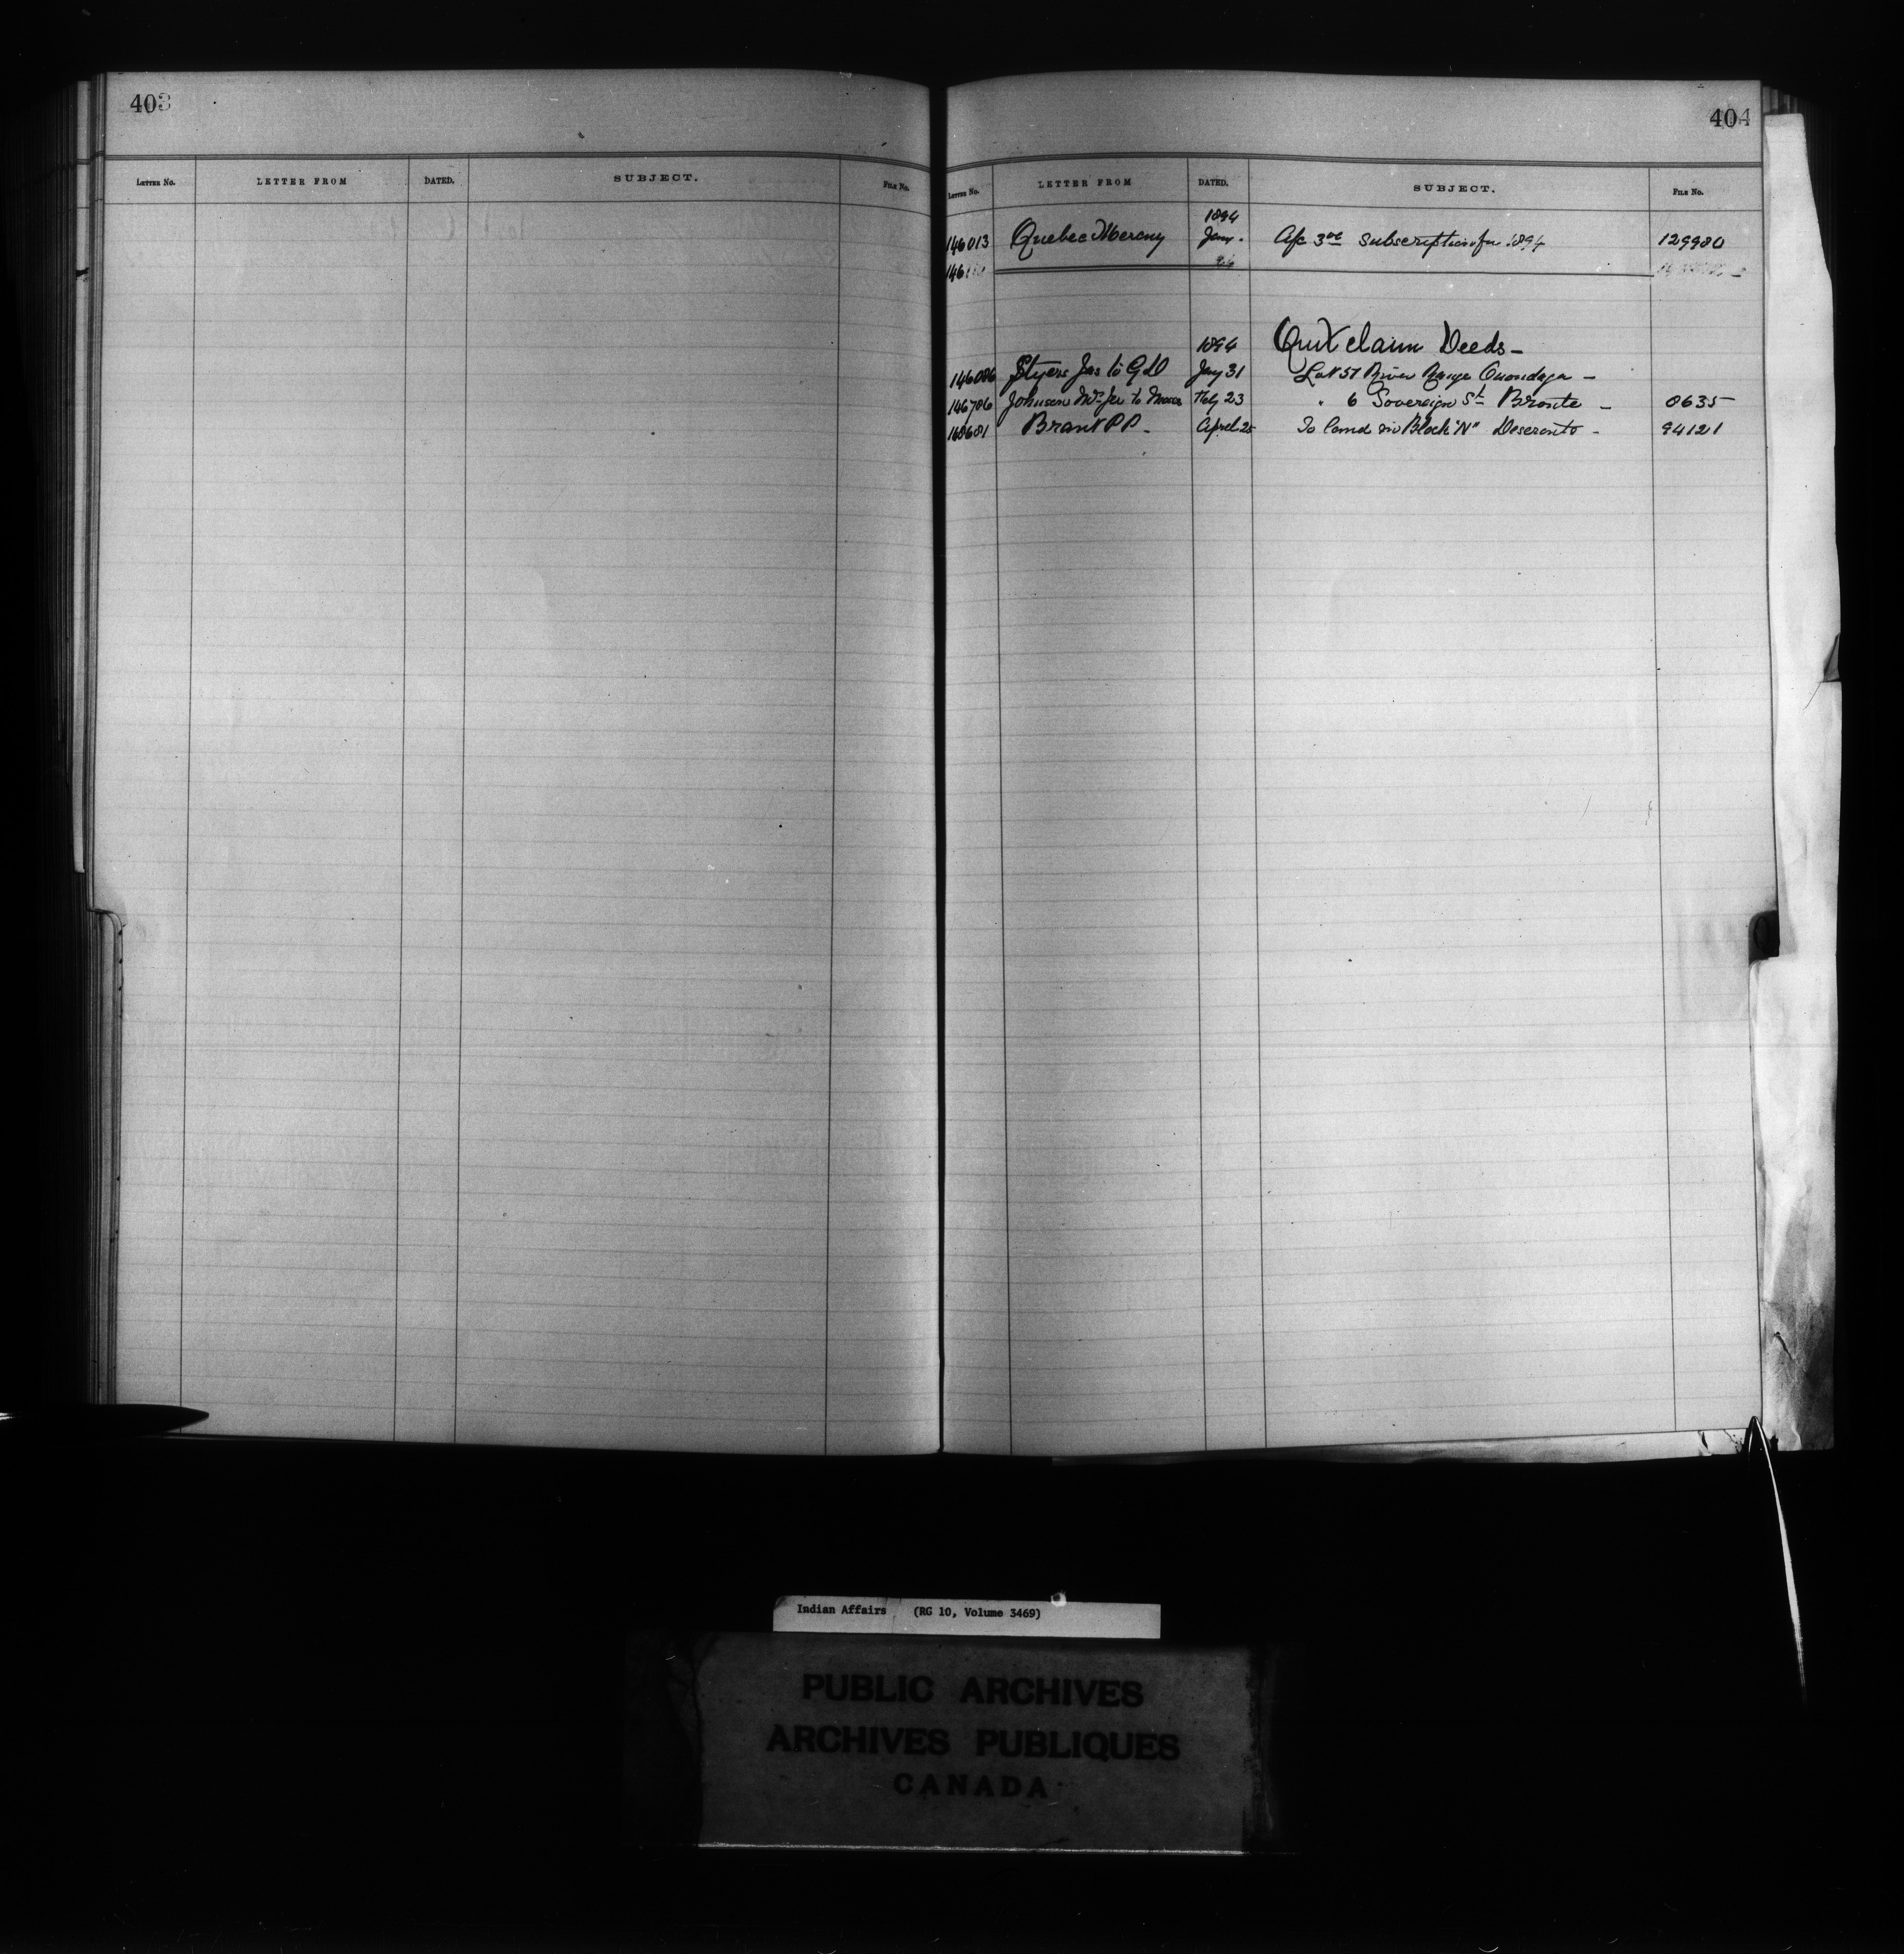 403
LETTER NO. LETTER FROM DATED. SUBJECT. FILE No.
404
LETTER NO. LETTER FROM DATED. SUBJECT. FILE No.
1894
146013 Quebec Mercury Jany. A/c 3.00 subscription for 1894 129980
1894 Quit claim Deeds —
146086 Styers Jas to G D Jay 31 Lot 57 River Range Onondaga —
146786 Johnson Wm Jr to Feby 23 " 6 Sovereign St Bronte — 8635
Brant P P. — April 25 To land in Block "N" Deseronto — 94121
Indian Affairs (RG 10, Volume 3469)
PUBLIC ARCHIVES
ARCHIVES PUBLIQUES
CANADA